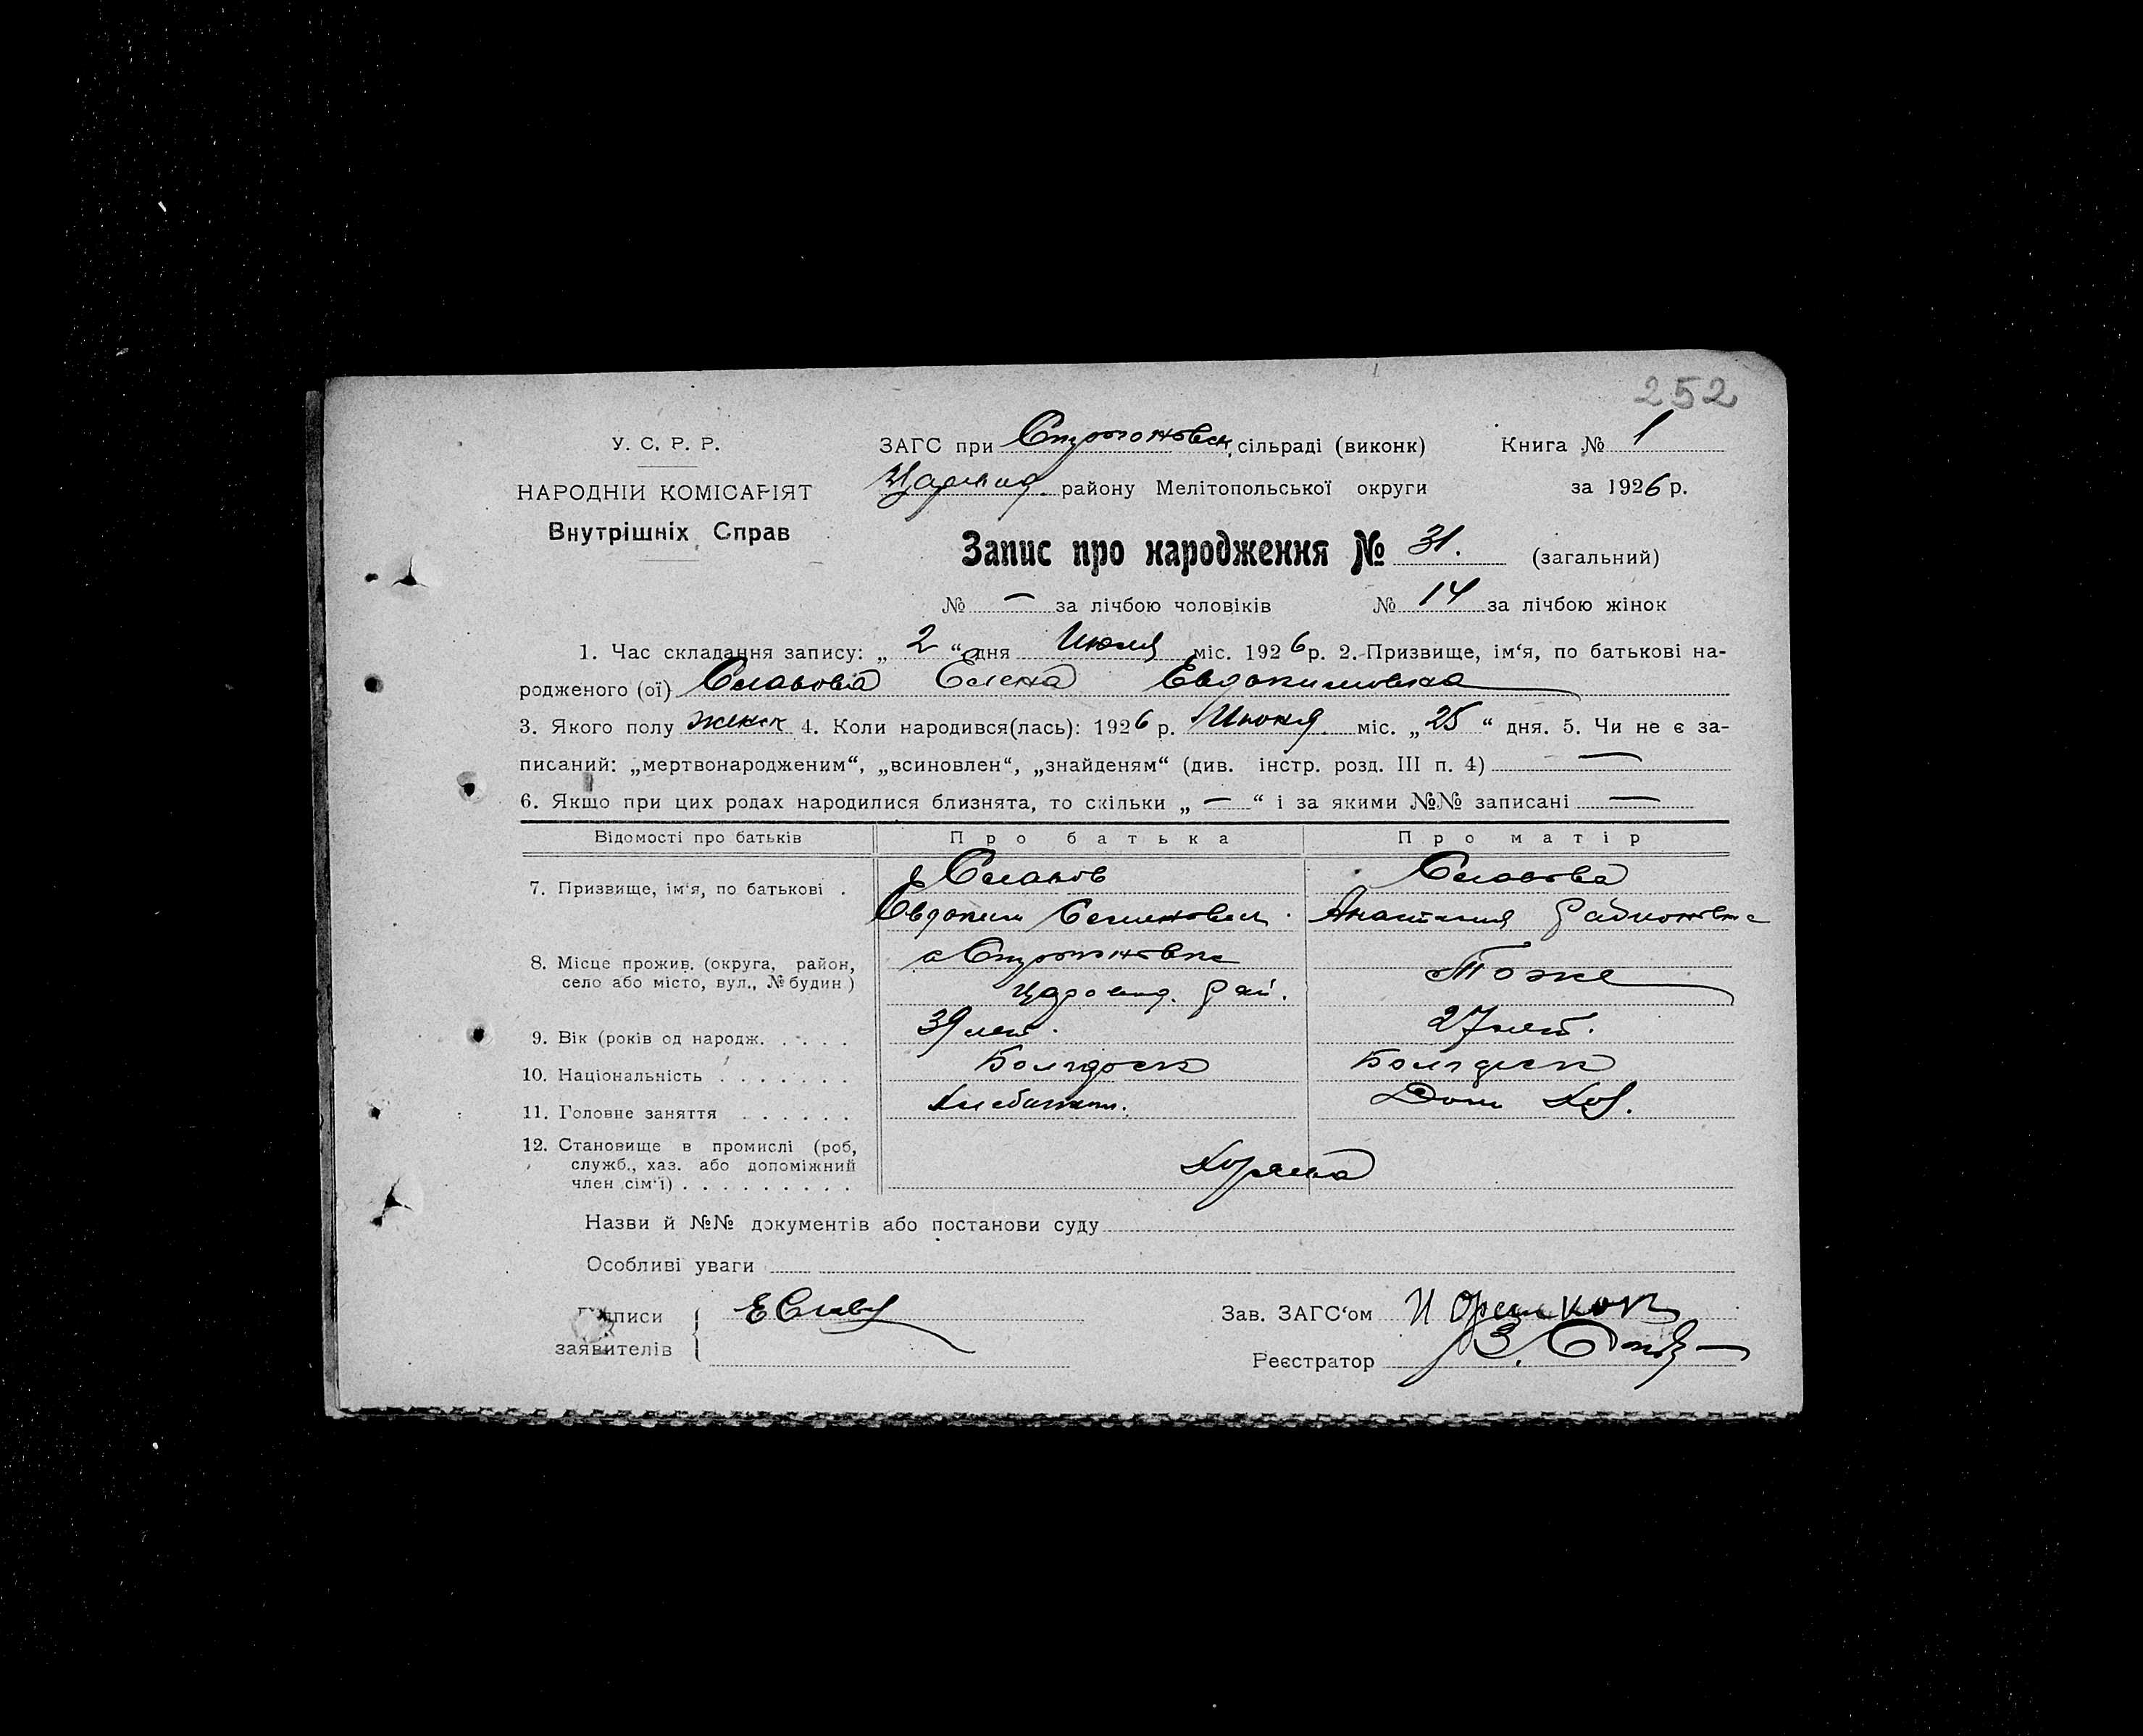 252
У. С. Р. Р.
НАРОДНІЙ КОМІСАРІЯТ
Внутрішніх Справ
ЗАГС при Строгановск. сільраді (виконк) Книга № 1
району Мелітопольської округи за 1926 р.
Запис про народження № 31. (загальний)
№ — за лічбою чоловіків № 14 за лічбою жінок
1. Час складання запису: „ 2 “ дня Июля міс. 1926 р. 2. Призвище, ім‘я, по батькові на-
родженого (ої) Славова Елена Евдокимовна
3. Якого полу женск 4. Коли народився(лась): 1926 р. Июня міс. „ 25 “ дня. 5. Чи не є за-
писаний: „мертвонародженим“, „всиновлен“, „знайденям“ (див. інстр. розд. III п. 4) —
6. Якщо при цих родах народилися близнята, то скільки „ — “ і за якими №№ записані —
Відомості про батьків Про батька Про матір
7. Призвище, ім‘я, по батькові . Славов Славова
Евдоким Семенович Анастасия Радионовна
8. Місце прожив. (округа, район,
село або місто, вул., № будин) Тоже
9. Вік (років од народж. . . . . 39 лет. 27 лет.
10. Національність . . . . . . . Болгарск Болгарск
11. Головне заняття . . . . . . Хлебопаш. Дом. Хоз.
12. Становище в промислі (роб,
служб., хаз. або допоміжний
член сім‘ї) . . . . . . . . .
Назви й №№ документів або постанови суду
Особливі уваги
Підписи
заявителів
Зав. ЗАГС‘ом
Реєстратор